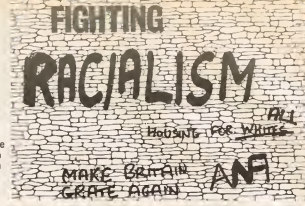 FIGHTING
RACIALISM
ALL
HOUSING FOR WHITES
MAKE BRITAIN
GRATE AGAIN